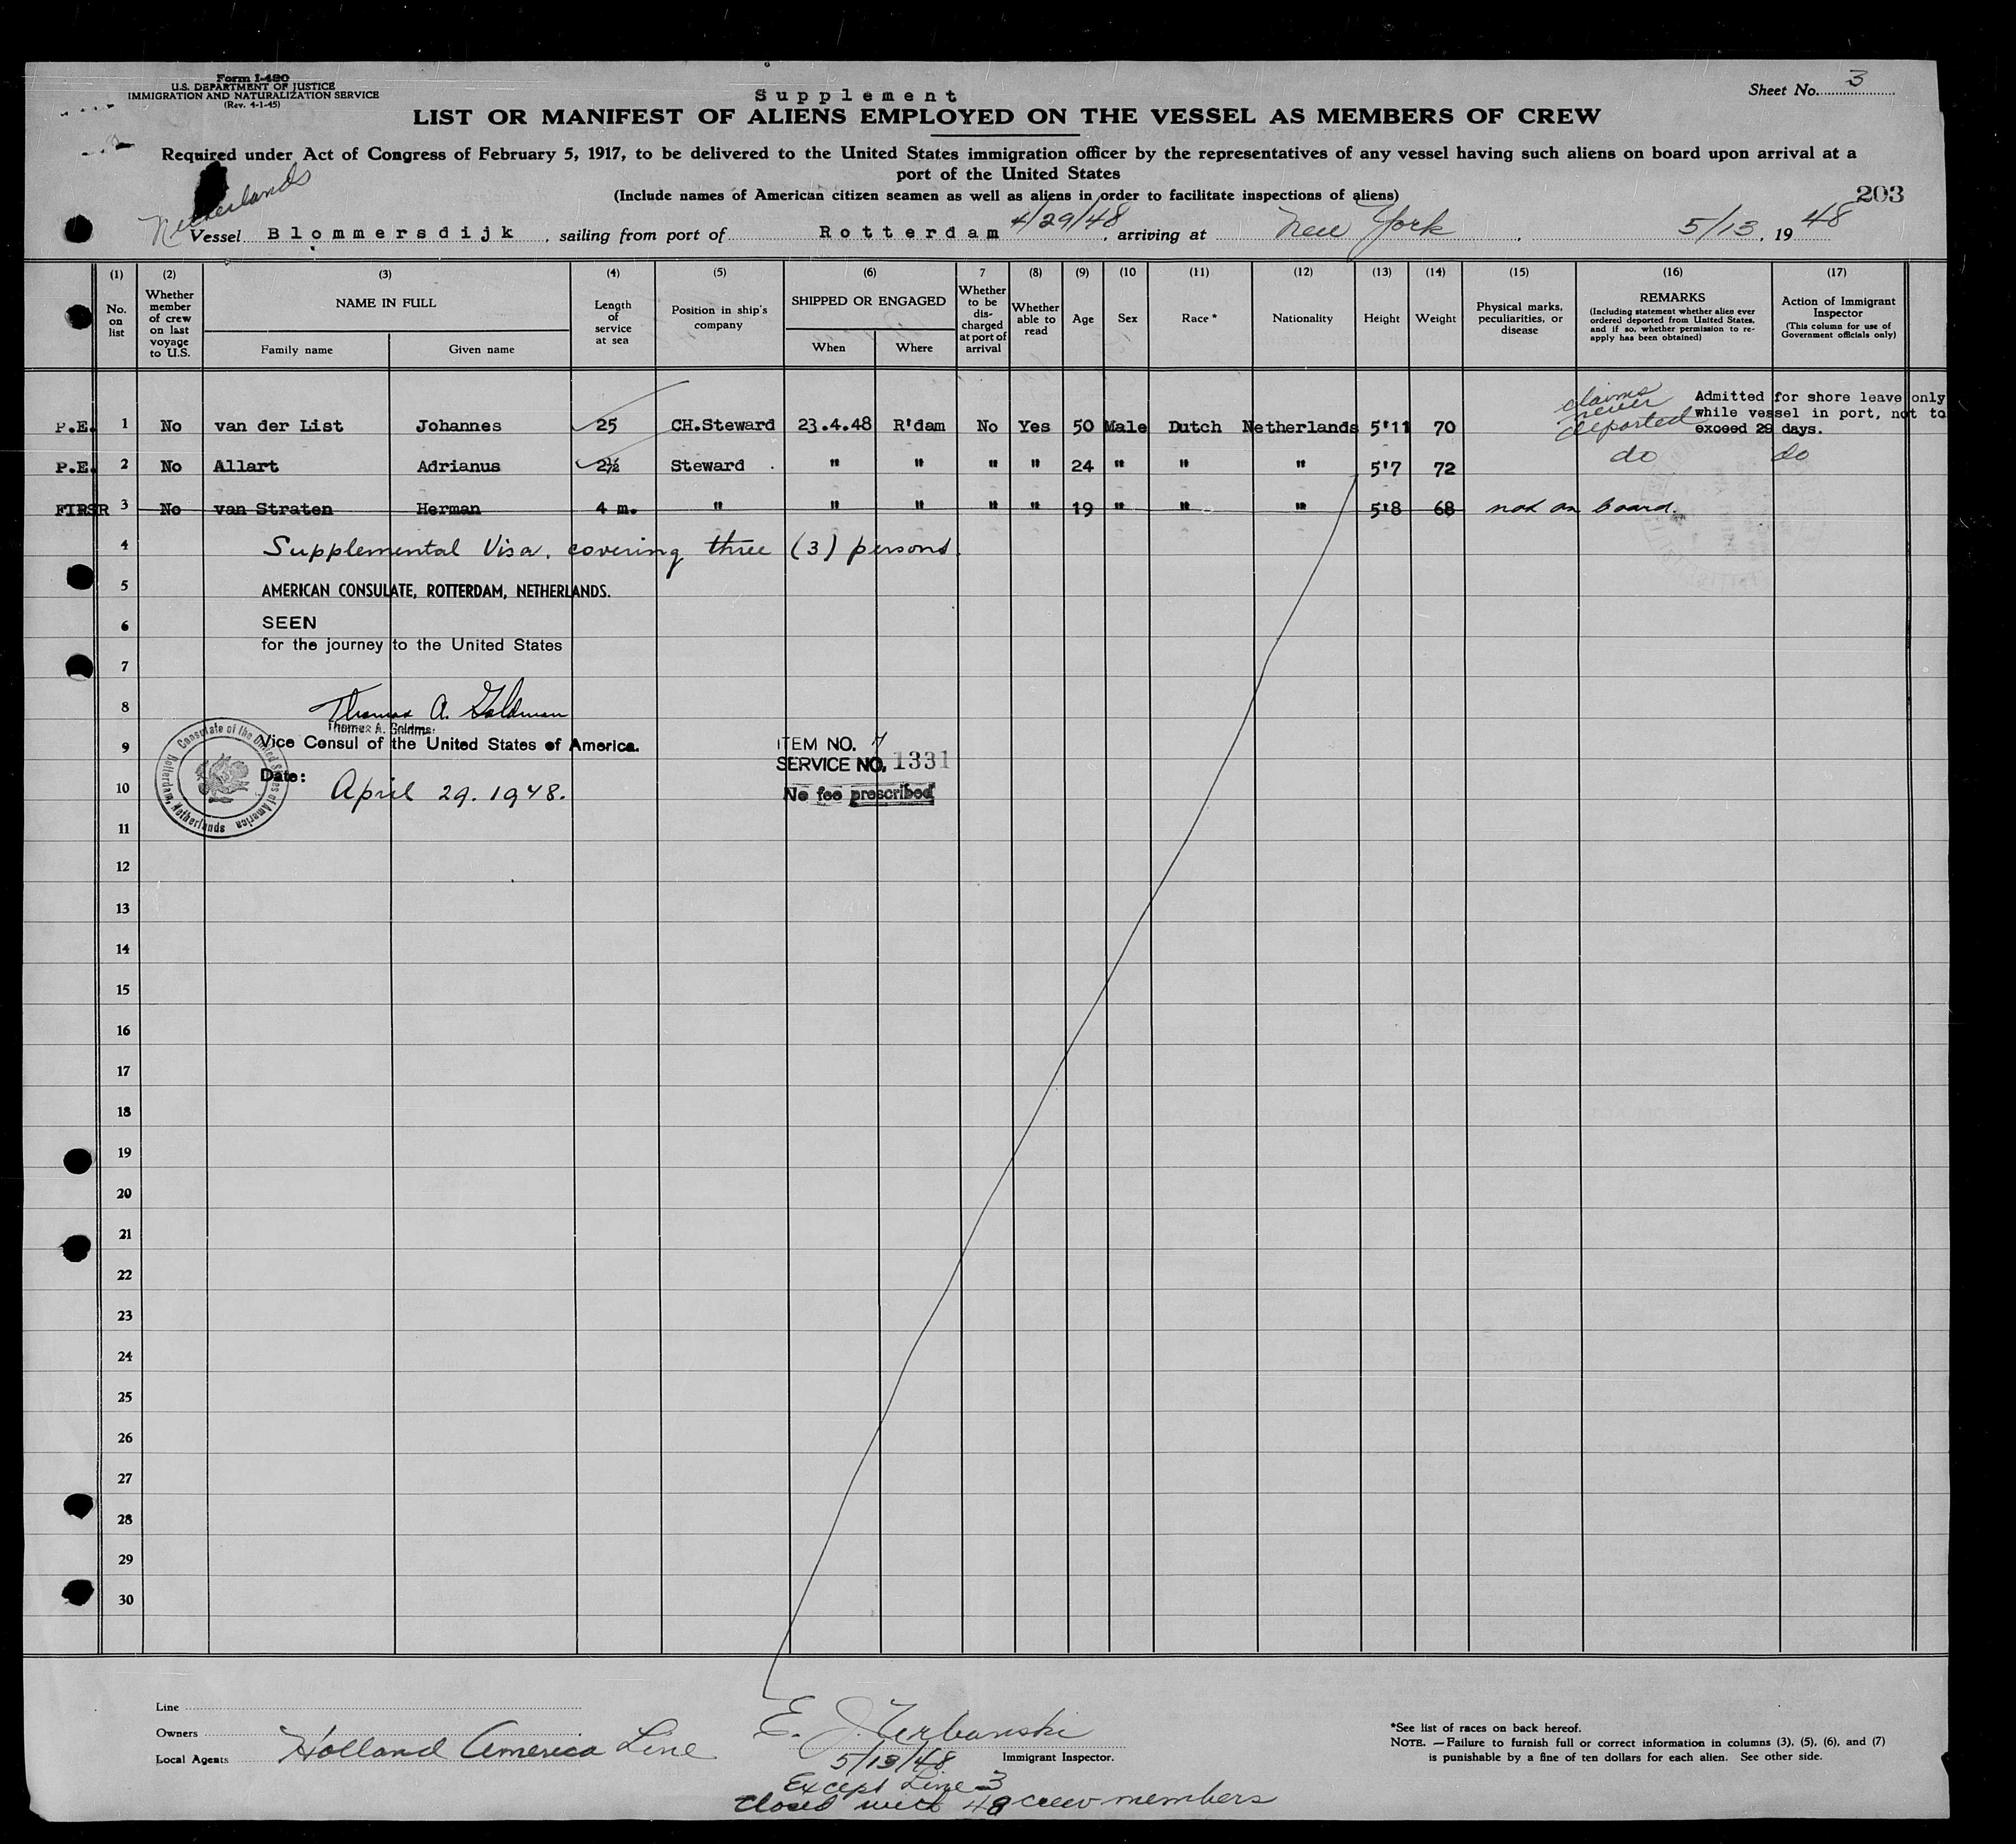 Form I-480
U.S. DEPARTMENT OF JUSTICE
IMMIGRATION AND NATURALIZATION SERVICE
(Rev. 4-1-45)
Supplement
Sheet No. 3
LIST OR MANIFEST OF ALIENS EMPLOYED ON THE VESSEL AS MEMBERS OF CREW
Required under Act of Congress of February 5, 1917, to be delivered to the United States immigration officer by the representatives of any vessel having such aliens on board upon arrival at a
port of the United States
(Include names of American citizen seamen as well as aliens in order to facilitate inspections of aliens)
203
Netherlands
Vessel Blommersdijk, sailing from port of Rotterdam 4/29/48, arriving at New York, 5/13, 1948
(1) (2) (3) (4) (5) (6) 7 (8) (9) (10 (11) (12) (13) (14) (15) (16) (17)
No. on list
Whether member of crew on last voyage to U.S.
NAME IN FULL
Family name
Given name
Length of service at sea
Position in ship's company
SHIPPED OR ENGAGED
When
Where
Whether to be discharged at port of arrival
Whether able to read
Age
Sex
Race *
Nationality
Height
Weight
Physical marks, peculiarities, or disease
REMARKS
(Including statement whether alien ever ordered deported from United States, and if so, whether permission to re-apply has been obtained)
Action of Immigrant Inspector
(This column for use of Government officials only)
P.E. 1 No van der List Johannes 25 CH.Steward 23.4.48 R'dam No Yes 50 Male Dutch Netherlands 5'11 70 claims never deported Admitted for shore leave only while vessel in port, not to exceed 29 days.
P.E. 2 No Allart Adrianus 2½ Steward " " " " 24 " " " 5'7 72 do do
FIRSR 3 No van Straten Herman 4 m. " " " " " 19 " " " 5'8 68 not on board.
4 Supplemental Visa, covering three (3) persons.
5 AMERICAN CONSULATE, ROTTERDAM, NETHERLANDS.
6 SEEN
for the journey to the United States
7
8 Thomas A. Goldman
Thomas A. Goldma
9 Vice Consul of the United States of America.
Consulate of the United States of America
Rotterdam, Netherlands
10 Date: April 29. 1948.
ITEM NO. 7
SERVICE NO. 1331
No fee prescribed
11
12
13
14
15
16
17
18
19
20
21
22
23
24
25
26
27
28
29
30
Line
Owners
Local Agents Holland America Line
E. J. Urbanski
5/13/48 Immigrant Inspector.
Except Line 3
Closed with 48 crew members
*See list of races on back hereof.
NOTE. —Failure to furnish full or correct information in columns (3), (5), (6), and (7)
is punishable by a fine of ten dollars for each alien. See other side.